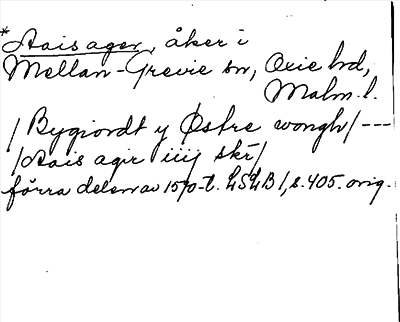 * Aais ager, åker i
Mellan-Grevie sn, Oxie hd,
Malm. l.
/ Bygiordt y Østre wongh / ---
/ Aais agir iiij skr /
förra delen av 1570-t. LSLB 1, s. 405. orig.